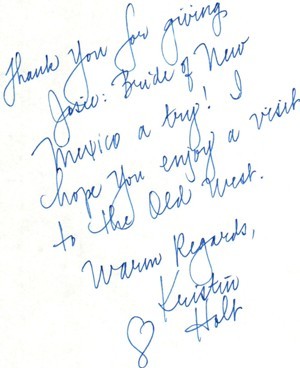 Thank you for giving
Josie: Bride of New
Mexico a try! I
hope you enjoy a visit
to the Old West.
Warm Regards,
Kristin
Holt